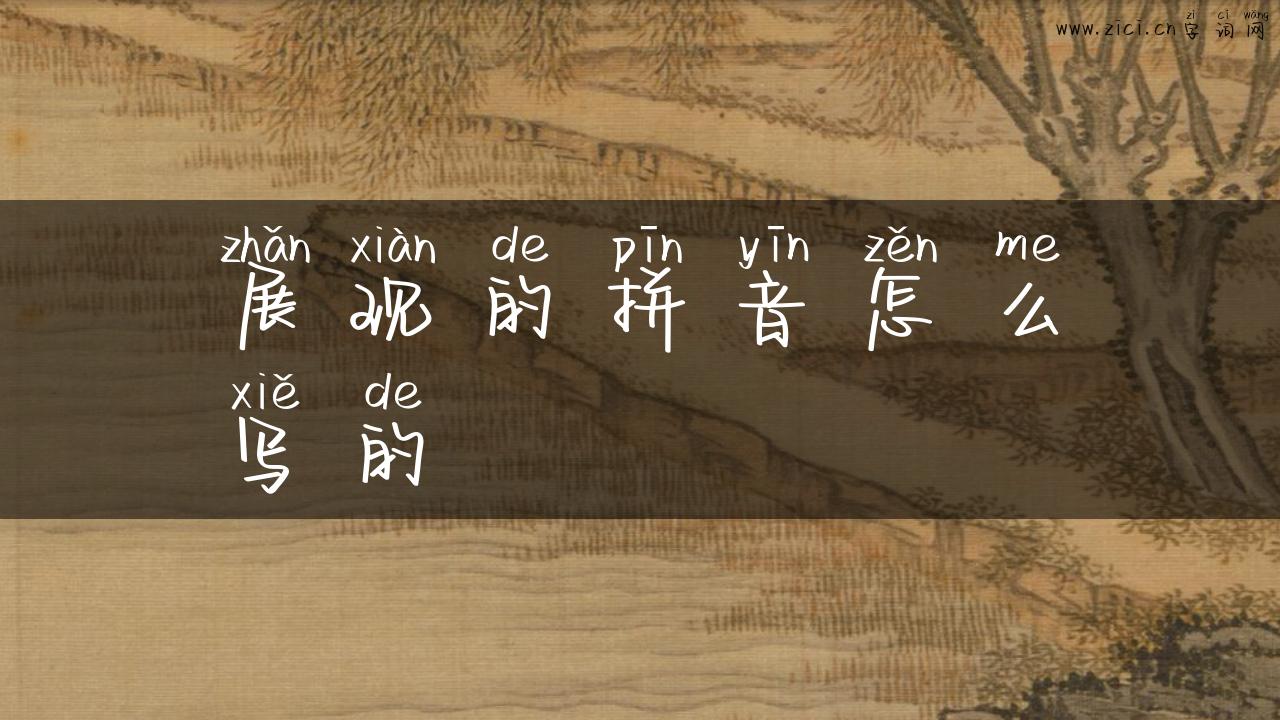 zì cí wǎng
www.zici.cn字词网
zhǎn xiàn de pīn yīn zěn me
展现的拼音怎么
xiě de
写的